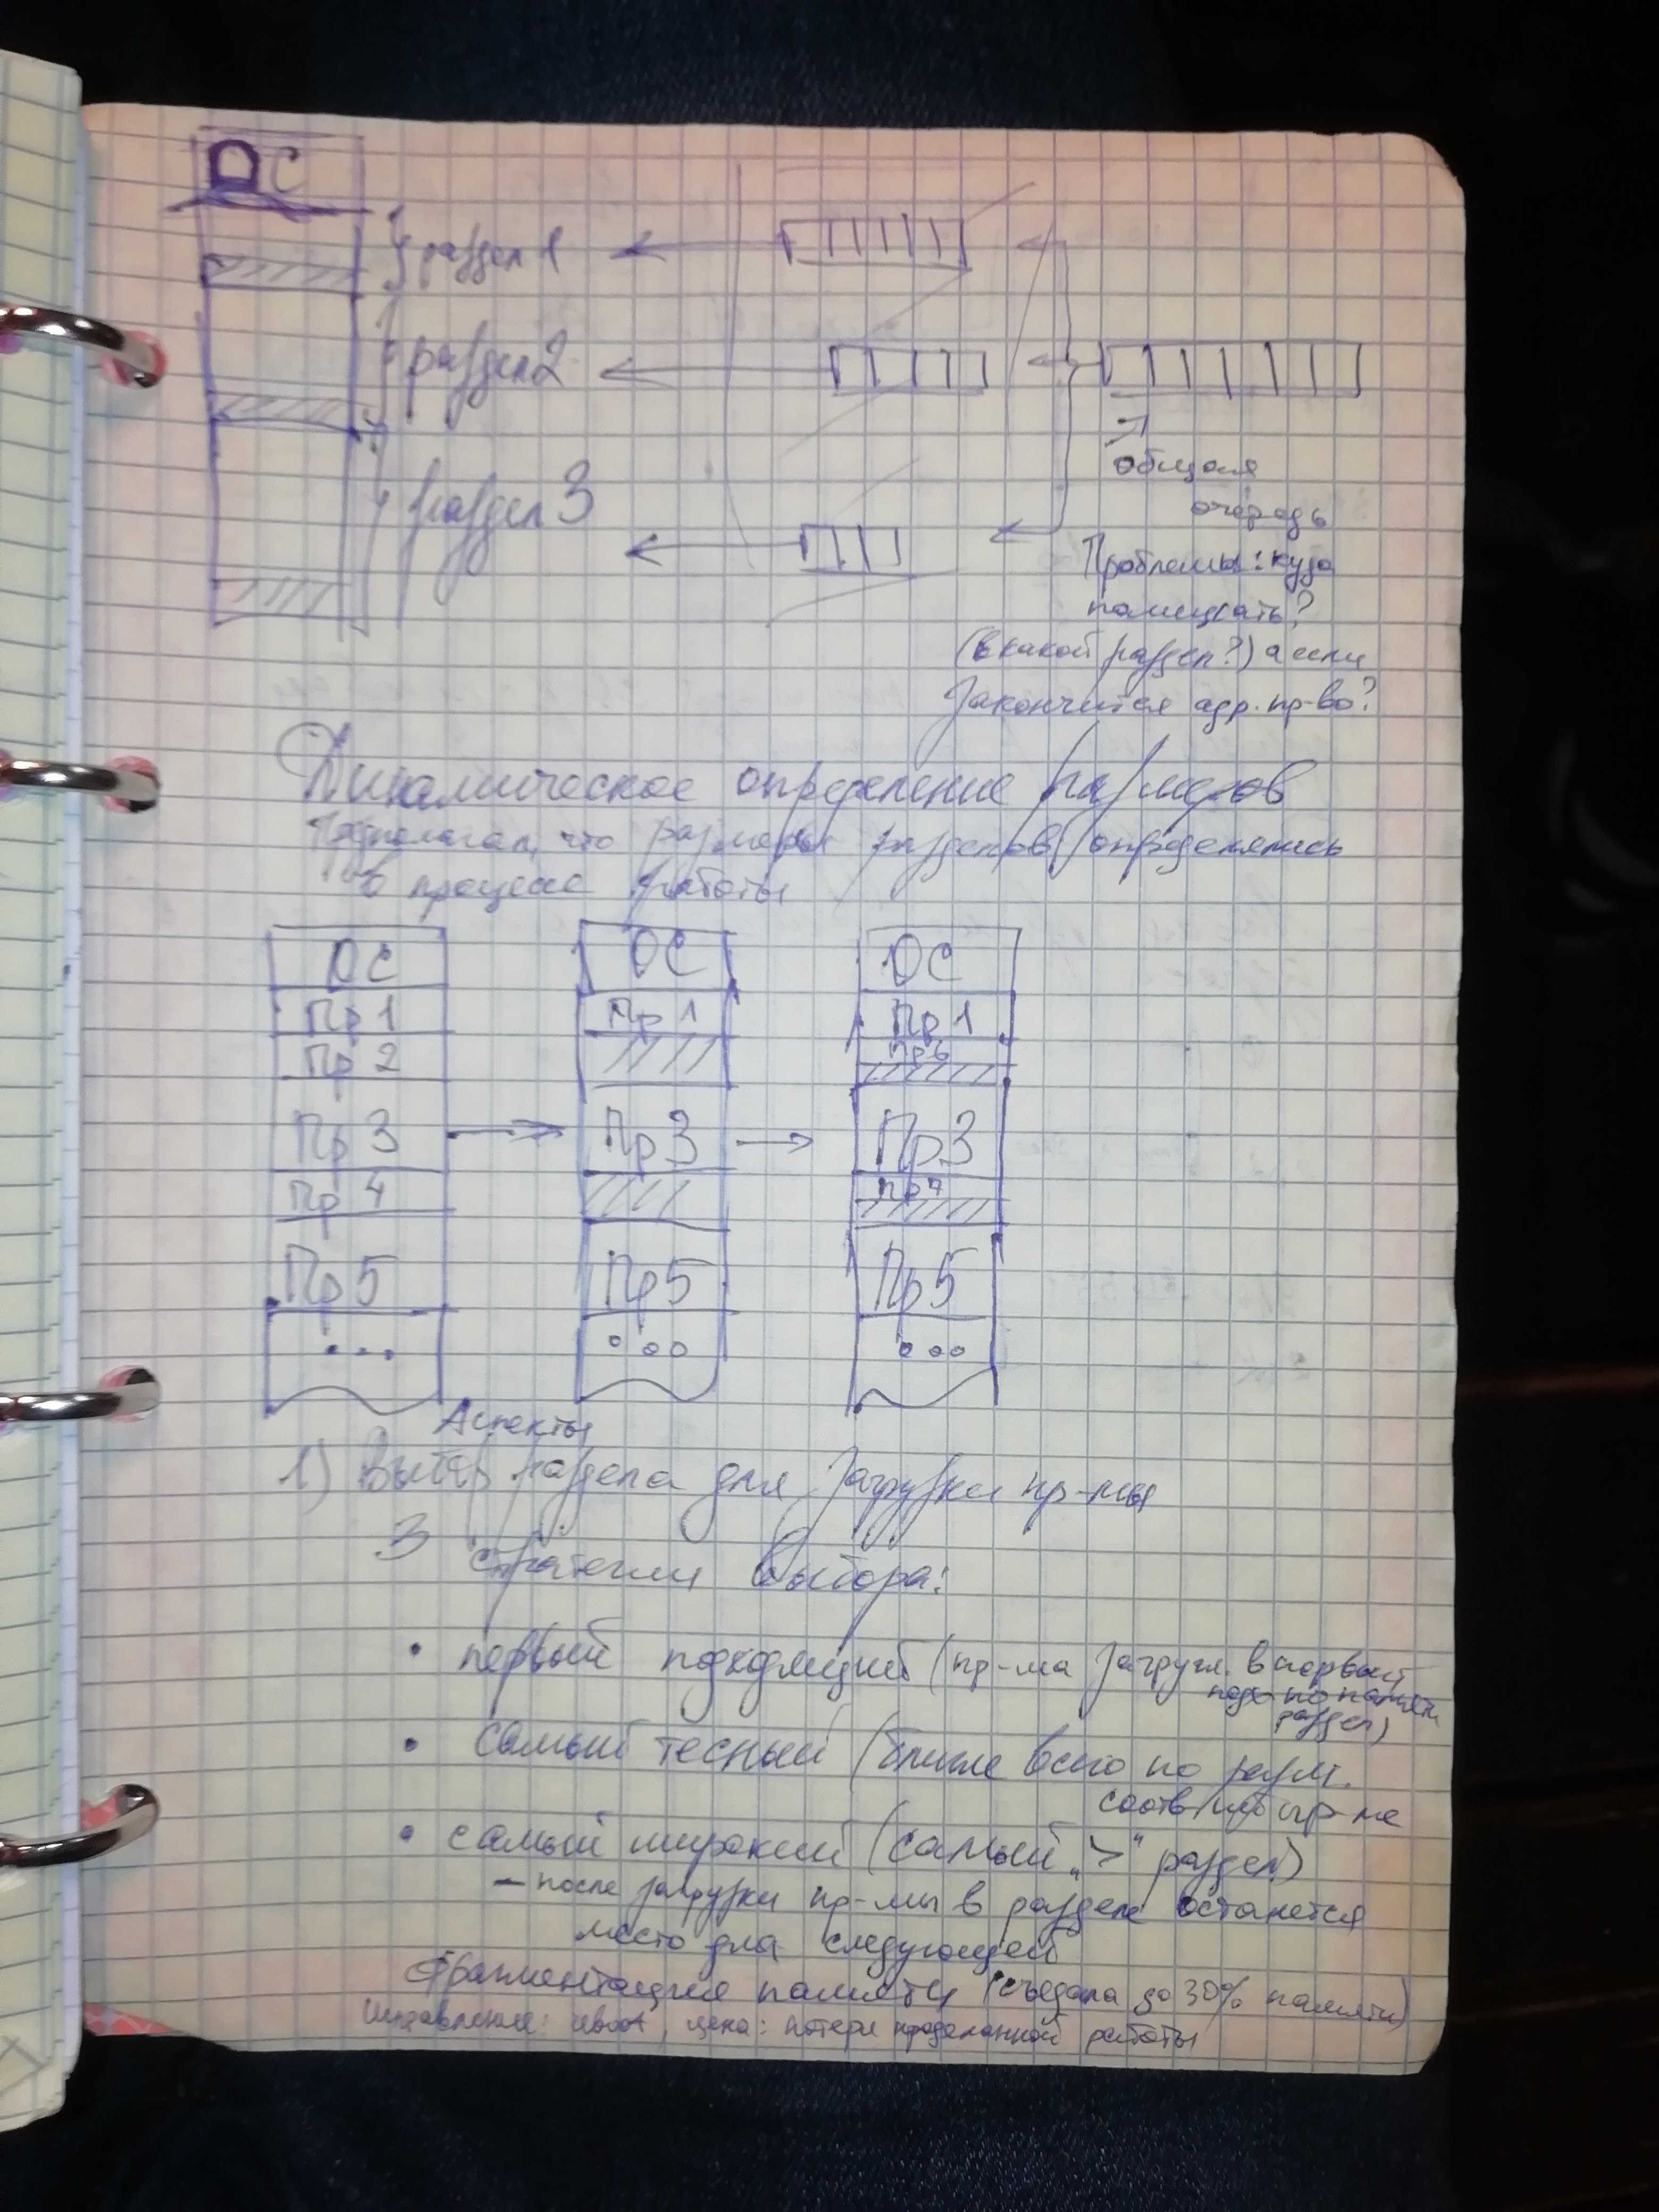 ОС
раздел 1
раздел 2
раздел 3
общая
очередь
Проблемы: куда
помещать?
(в какой раздел?) а если
закончится адр. пр-во?
Динамическое определение размеров
что размеры разделов определялись
в процессе работы
ОС ОС ОС
Пр 1 Пр 1 Пр 1
Пр 2 Пр 6
Пр 3 Пр 3 Пр 3
Пр 4 Пр 7
Пр 5 Пр 5 Пр 5
... ... ...
Аспекты
1) Выбор раздела для загрузки пр-мы
3 стратегии выбора:
• первый подходящий (пр-ма загруж. в первый
подх по памяти
раздел)
• самый тесный (ближе всего по разм.
соотв пр-ме
• самый широкий (самый „>" раздел)
– после загрузки пр-мы в разделе останется
место для следующей
Фрагментация памяти (съедала до 30% памяти)
Исправление: reboot, цена: потери проделанной работы